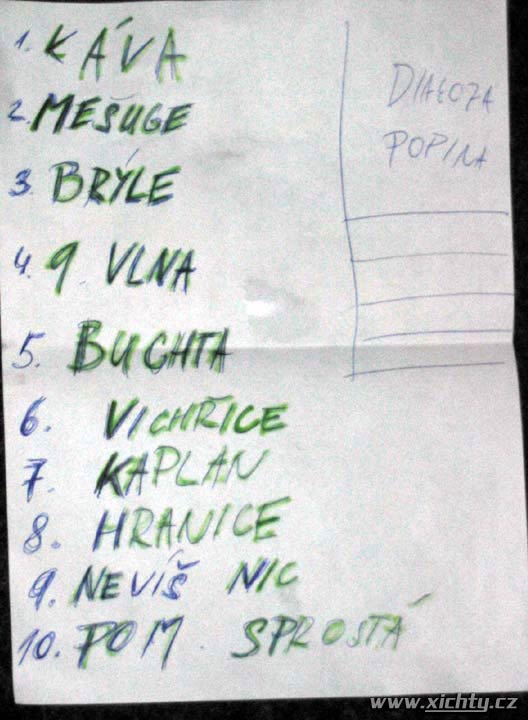 1. KÁVA
2. MEŠUGE
3. BRÝLE
4. 9 VLNA
5. BUCHTA
6. VICHŘICE
7. KAPLAN
8. HRANICE
9. NEVÍŠ NIC
10. POM. SPROSTÁ
POPINA
www.xichty.cz